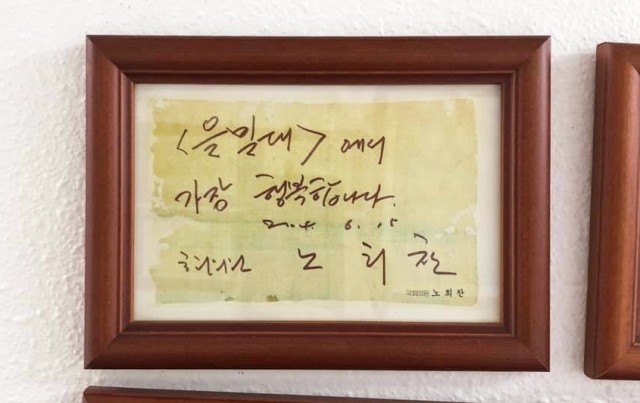 <을밀대> 에서
가장 행복합니다.
2004. 6. 15
국회의원 노 회 찬
국회의원 노 회 찬